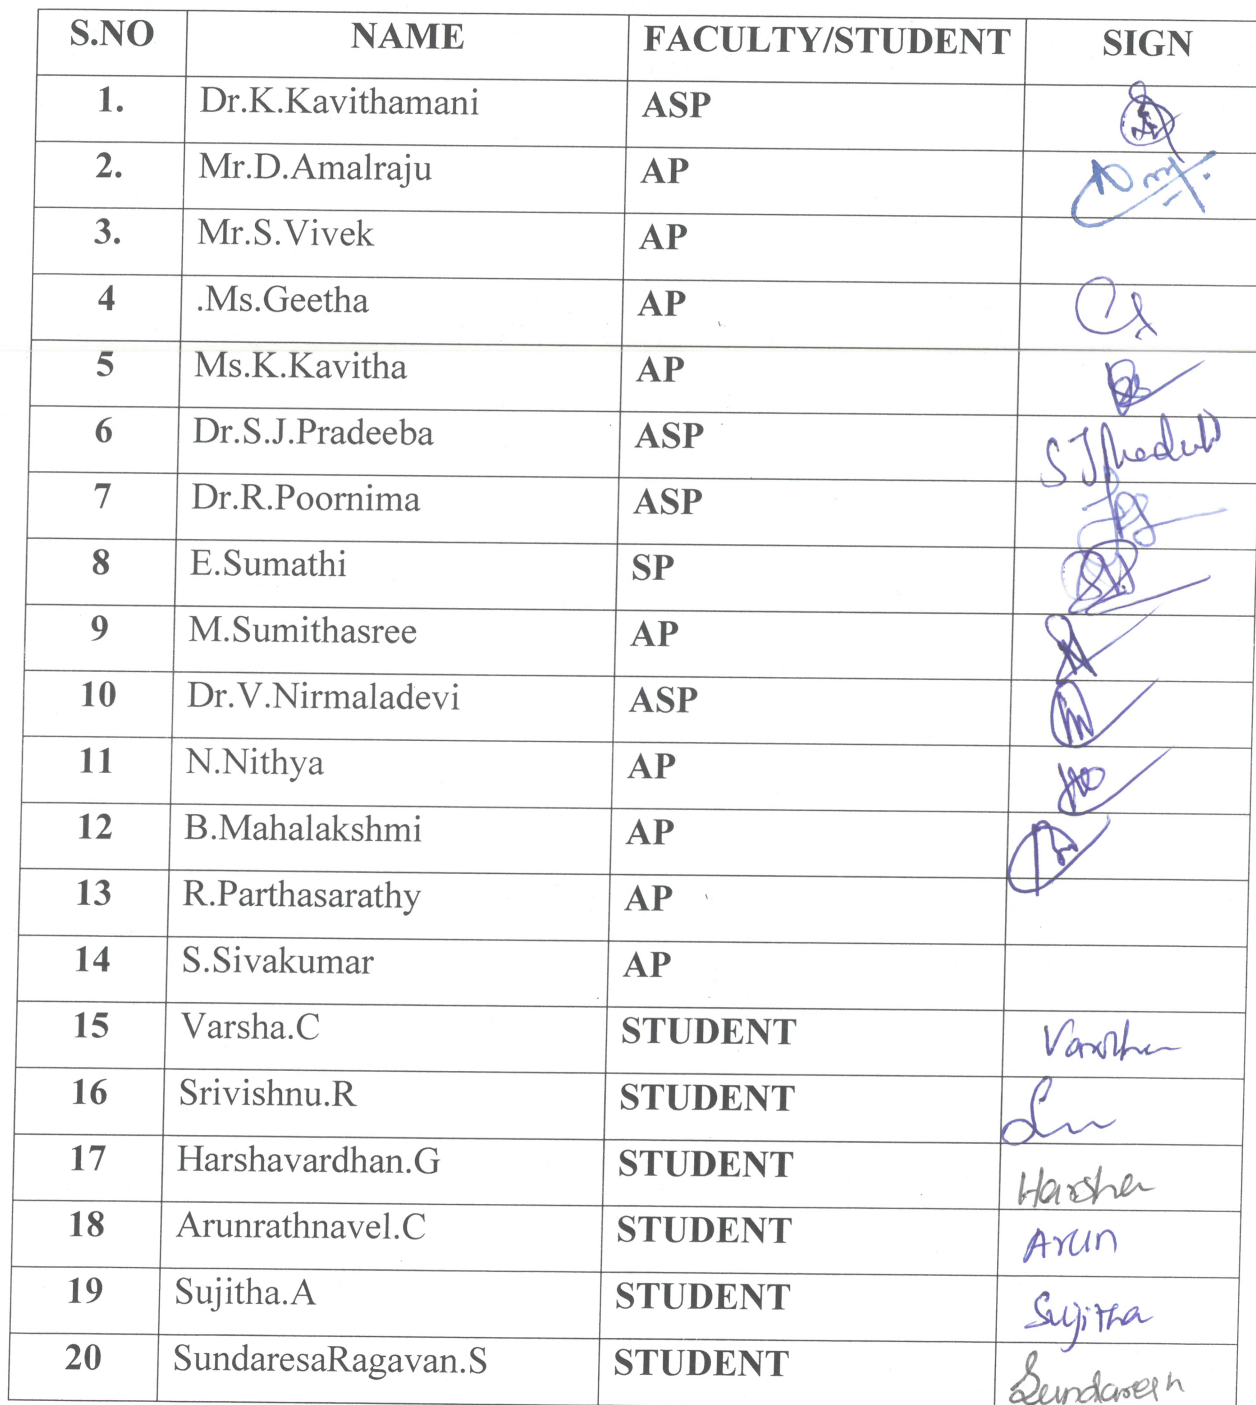 S.NO NAME FACULTY/STUDENT SIGN
1. Dr.K.Kavithamani ASP
2. Mr.D.Amalraju AP
3. Mr.S.Vivek AP
4 .Ms.Geetha AP
5 Ms.K.Kavitha AP
6 Dr.S.J.Pradeeba ASP
7 Dr.R.Poornima ASP
8 E.Sumathi SP
9 M.Sumithasree AP
10 Dr.V.Nirmaladevi ASP
11 N.Nithya AP
12 B.Mahalakshmi AP
13 R.Parthasarathy AP
14 S.Sivakumar AP
15 Varsha.C STUDENT Varsha
16 Srivishnu.R STUDENT
17 Harshavardhan.G STUDENT Harsha
18 Arunrathnavel.C STUDENT Arun
19 Sujitha.A STUDENT Sujitha
20 SundaresaRagavan.S STUDENT Sundaresh